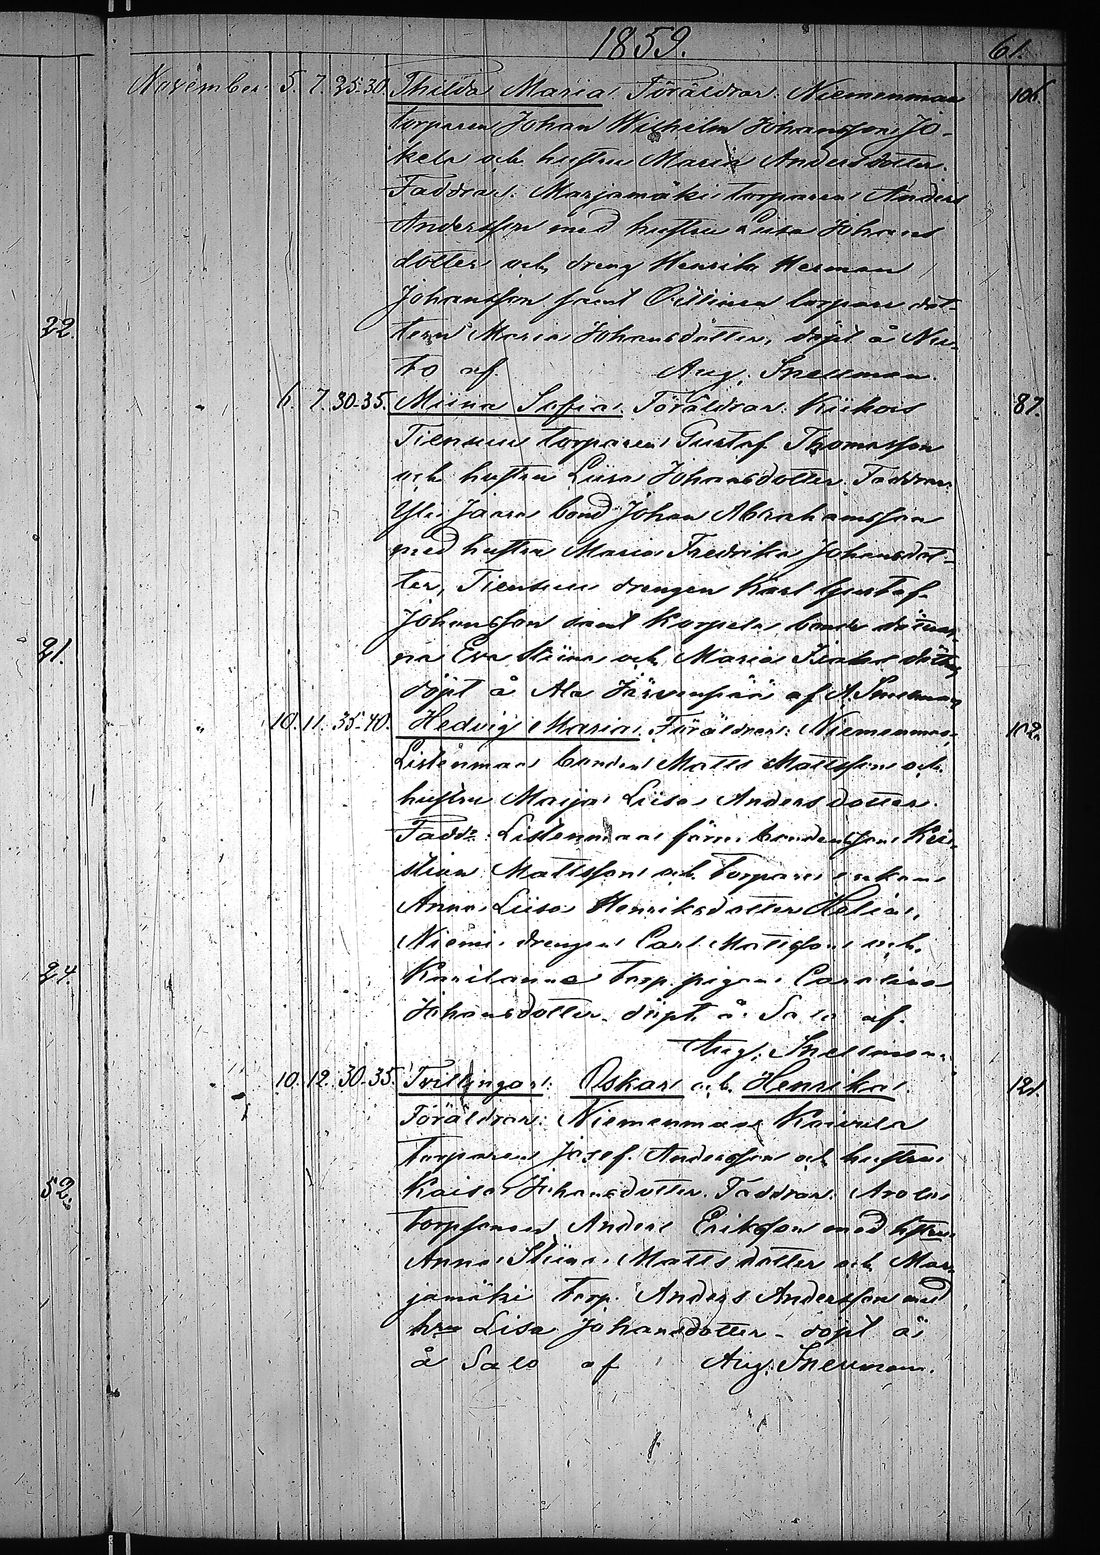 1859. 61.
November. 5. 7. 25-30. Thilda Maria. Föräldrar: Niemenmaa 106.
torparen Johan Wilhelm Johansson Jo-
kela och hustru Maria Andersdotter.
Faddrar: Marjamäki torparen Anders
Andersson med hustru Lisa Johans
dotter och dreng Henrik Herman
Johansson samt torpare dot-
tern Maria Johansdotter, döpt å
to af Aug. Snellman.
22.
" 6. 7. 30-35. Miina Sofia. Föräldrar: Kiikois 87.
Tiensuu torparen Gustaf Thomasson
och hustru Liisa Johansdotter. Faddrar:
Yli Jaara bond Johan Abrahamsson
med hustru Maria Fredrika Johansdot-
ter, Tiensuu drengen Karl Gustaf
Johansson samt Korpela bonde döttrar-
na Eva Stiina och Maria
döpt å Ala Järvenpää af A. Snellman
21.
" 10. 11. 35-40. Hedvig Maria. Föräldrar: Niemenmaa 102.
Listenmaa bonden Matts Mattsson och
hustru Maija Liisa Andersdotter.
Faddr: Listenmaa förre bondenson Kri-
stian Mattsson och torpare enkan
Anna Liisa Henriksdotter
Niemi drengen Carl Mattsson och
torp. pigan Carolina
Johansdotter. döpt å Salo af
Aug. Snellman.
24.
" 10. 12. 30-35. Tvillingar: Oskar och Henrika. 121.
Föräldrar: Niemenmaa Koivula
torparen Josef Andersson och hustru
Kaisa Johansdotter. Faddrar: Arola
torpparen Anders Eriksson med hstru
Anna Stiina Mattsdotter och Mar-
jamäki torp. Anders Andersson med
hru Lisa Johansdotter - döpt å
å Salo af Aug. Snellman.
52.